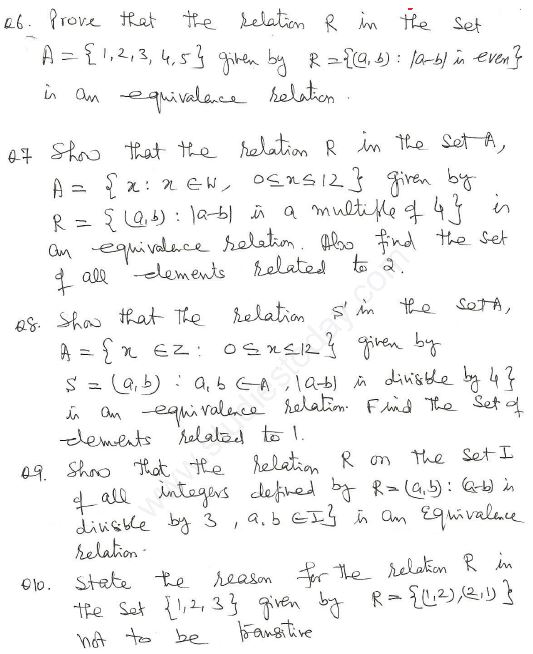 Q6. Prove that the relation R in the set
A = {1,2,3,4,5} given by R={(a,b) : |a-b| is even}
is an equivalence relation.
Q7 Show that the relation R in the set A,
A = { x : x ∈ W, 0 ≤ x ≤ 12 } given by
R = { (a,b) : |a-b| is a multiple of 4 } is
an equivalence relation. Also find the set
of all elements related to 2.
Q8. Show that the relation S in the set A,
A = { x ∈ Z : 0 ≤ x ≤ 12 } given by
S = (a,b) : a, b ∈ A, |a-b| is divisble by 4 }
is an equivalence relation. Find the set of
elements related to 1.
Q9. Show that the relation R on the set I
of all integers defined by R = (a,b) : (a-b) is
divisble by 3 , a, b ∈ I } is an Equivalence
relation.
Q10. State the reason for the relation R in
the set {1,2,3} given by R = {(1,2),(2,1)}
not to be transitive
www.studiestoday.com